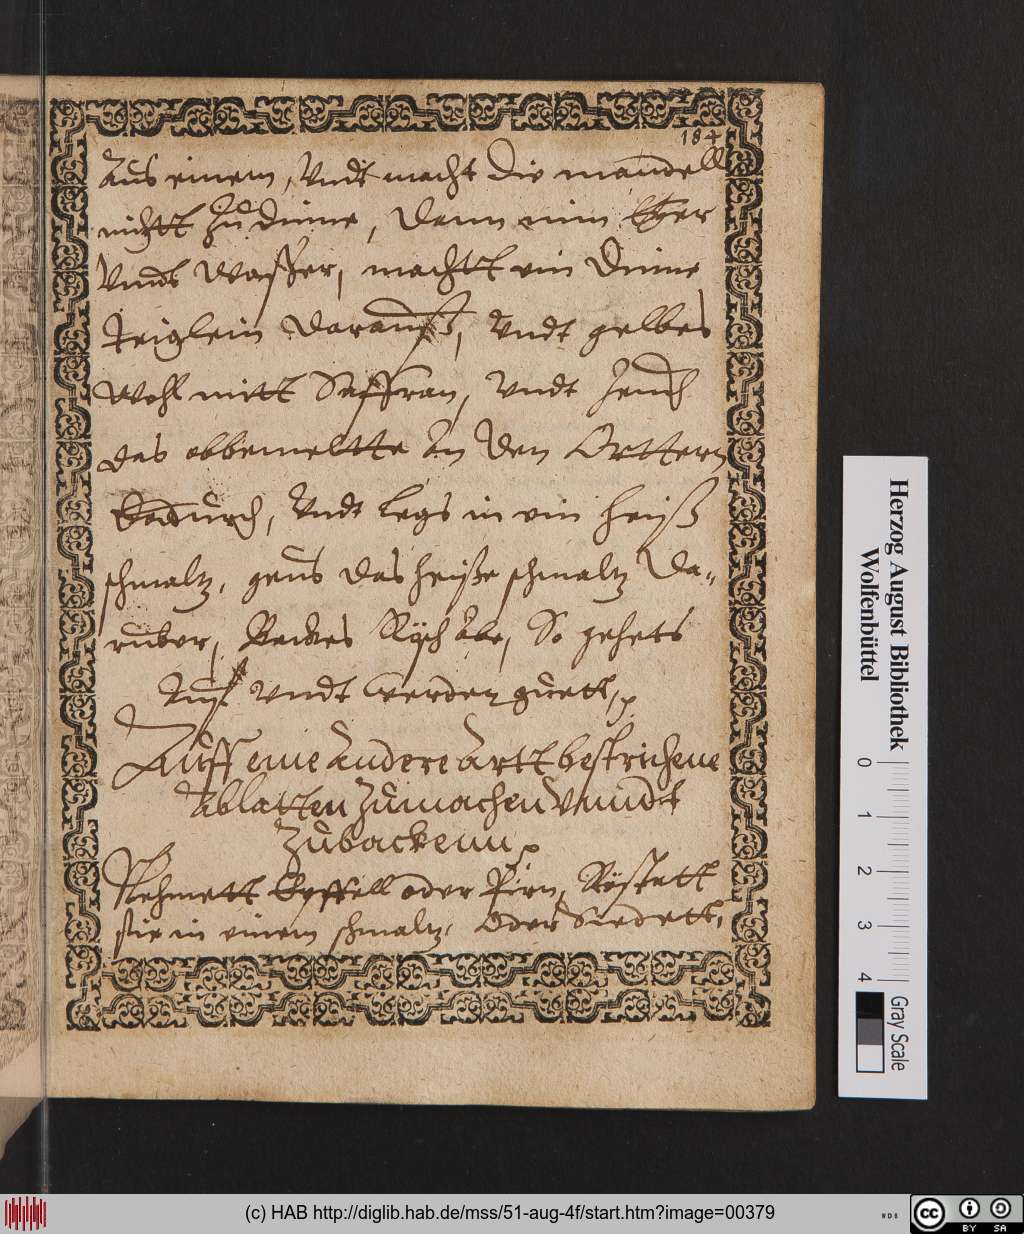 184
Aus einem, Undt macht die mandell
nichtt zu dinne, dann nim Eyer
Vndt Wasser, machtt ein dinne
teiglein darauß, Undt gelbes
Wohl mitt Saffran, Vndt zeuch
das obbemeltte an den Ortteren
dadurch, Undt legs in ein heiß
schmaltz, geus das heiße schmaltz da„
ruber, Backes Rysch abe, So gehets
Auf Undt werden guett,
Auff eine andere artt bestrichene
ablatten zu machen Vnndt
zu backenn
Nehmett Epffell oder Pirn, Röstett
sie in einem schmaltz, Oder Siedett,
Herzog August Bibliothek
Wolfenbüttel
0 1 2 3 4
Gray Scale
(c) HAB http://diglib.hab.de/mss/51-aug-4f/start.htm?image=00379
WDB
cc BY SA